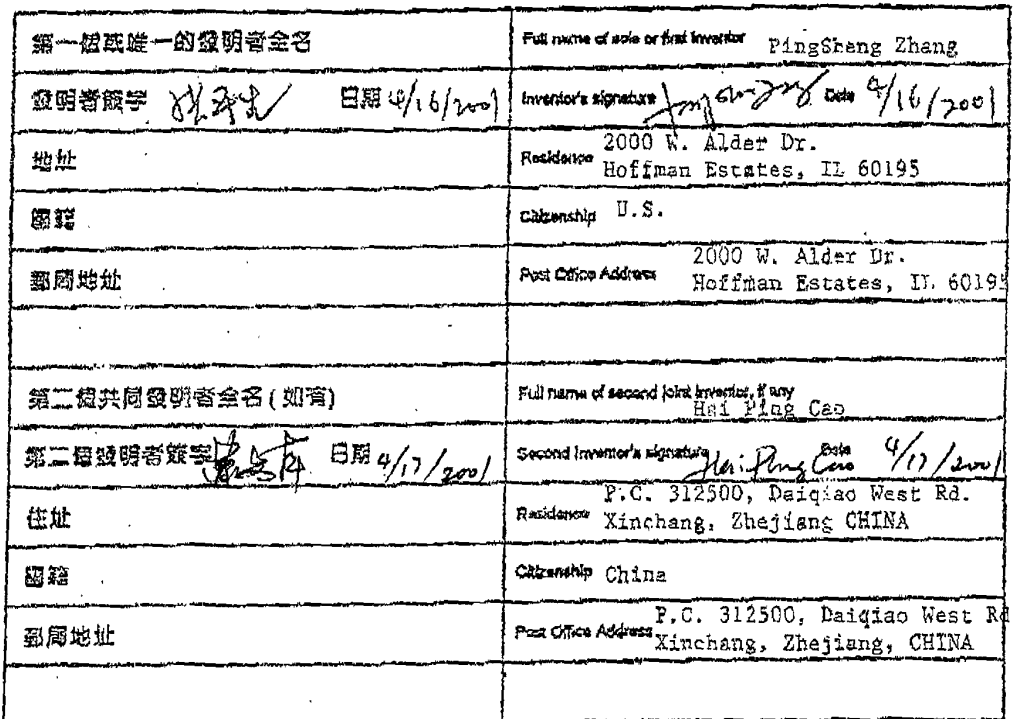 第一個或唯一的發明者全名
Full name of sole or first inventor PingSheng Zhang
發明者簽字 日期 4/16/2001
Inventor's signature Date 4/16/2001
地址
Residence 2000 W. Alder Dr.
Hoffman Estates, IL 60195
國籍
Citizenship U.S.
郵局地址
Post Office Address 2000 W. Alder Dr.
Hoffman Estates, IL 60195
第二個共同發明者全名(如有)
Full name of second joint inventor, if any
Hai Ping Cao
第二個發明者簽字 日期 4/17/2001
Second Inventor's signature Hai Ping Cao Date 4/17/2001
住址
Residence P.C. 312500, Daiqiao West Rd.
Xinchang, Zhejiang CHINA
國籍
Citizenship China
郵局地址
Post Office Address P.C. 312500, Daiqiao West Rd
Xinchang, Zhejiang, CHINA